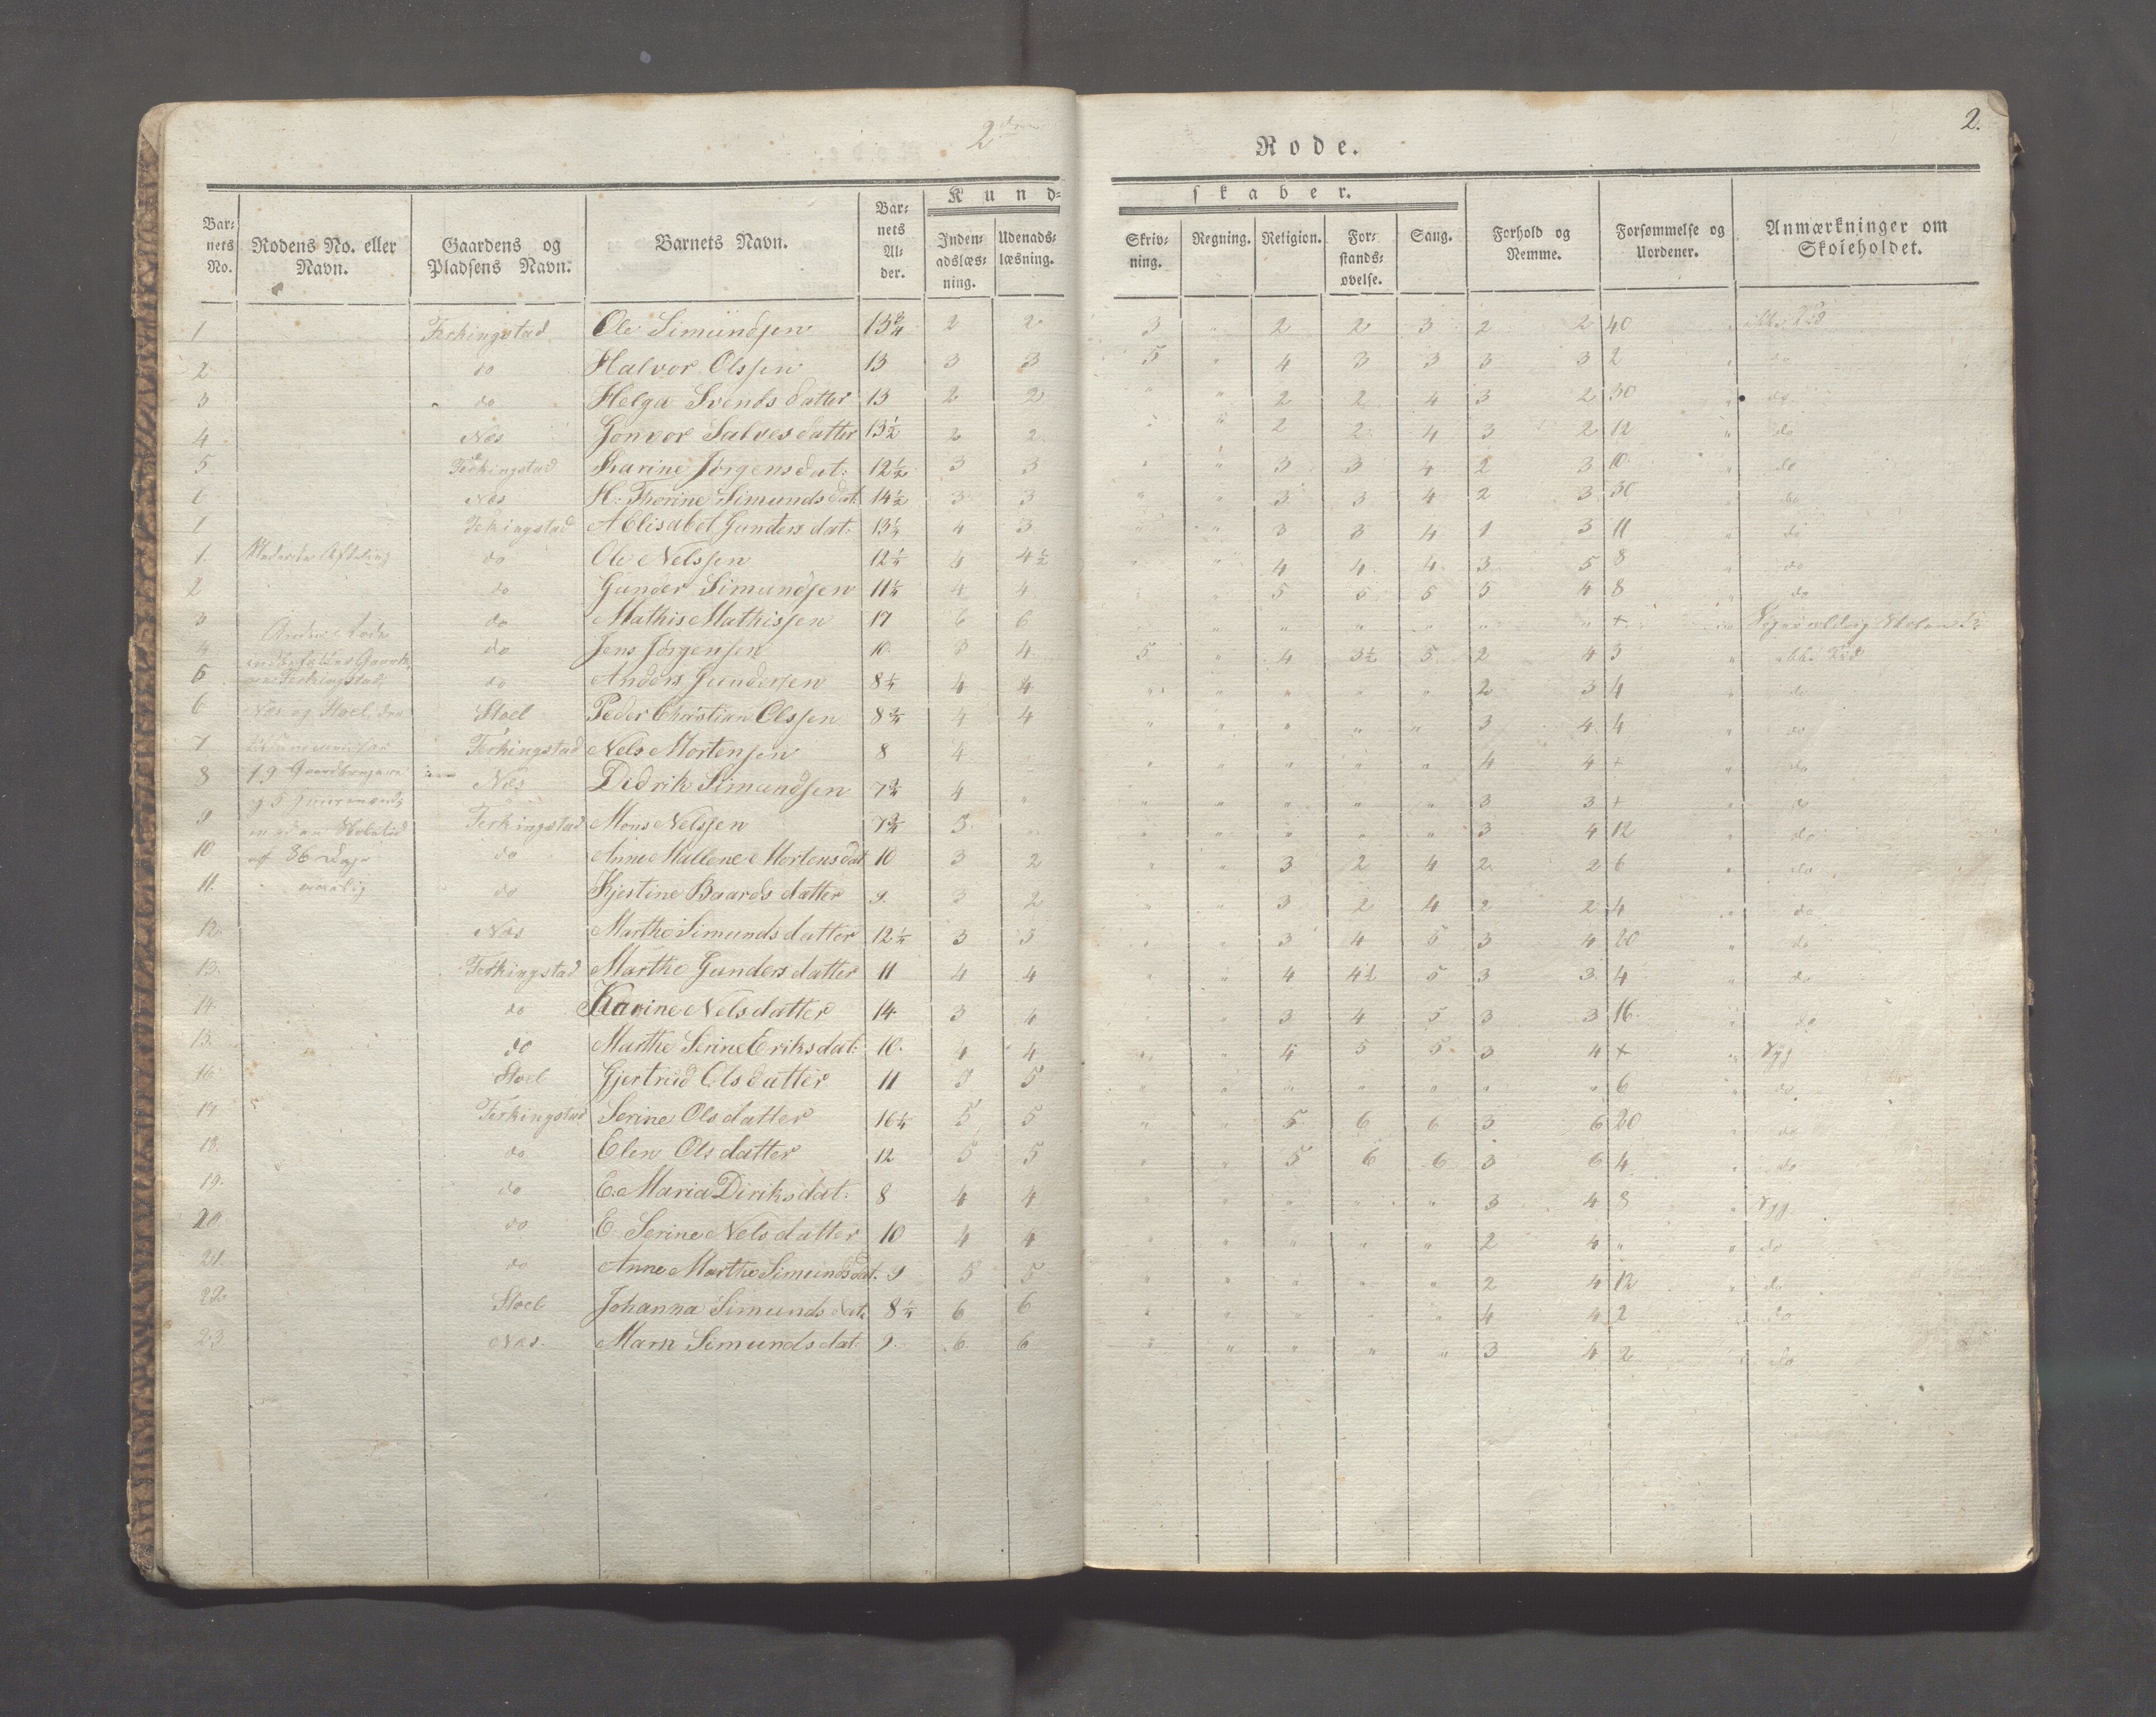 2den
Rode.
2.
Barnets No.
Rodens No. eller Navn.
Gaardens og Pladsens Navn.
Barnets Navn.
Barnets Alder.
Kundskaber.
Indenadslæsning.
Udenadslæsning.
Skrivning.
Regning.
Religion.
Forstandsøvelse.
Sang.
Forhold og Nemme.
Forsømmelse og Uordener.
Anmærkninger om Skoleholdet.
1 Ferkingstad Ole Simundsen 13 3/4 2 2 3 " 2 2 3 2 2 40 "
2 do Halvor Olssen 13 3 3 5 " 4 3 3 3 3 2 " do
3 do Helga Svendsdatter 13 2 2 " " 2 2 4 3 2 30 " do
4 Næs Gonvor Salvesdatter 13 1/2 2 2 " " 2 2 4 3 2 12 " do
5 Ferkingstad Karine Jørgensdat: 12 1/2 3 3 " " 3 3 4 2 3 10 " do
6 Næs H: Thorine Simundsdat 14 1/2 3 3 " " 3 3 4 2 3 30 " do
Ferkingstad A Elisabet Gundersdat: 4 3 " " 3 3 4 1 3 11 " do
1. Nederste Afdeling do Ole Nelssen 12 1/4 4 4 1/2 " " 4 4 4 3 5 8 " do
2 do Gunder Simundsen 4 4 " " 5 5 5 5 4 8 " do
3 do Mathis Mathissen 17 6 6 " " " " " " " + "
4 do Jens Jørgensen 10 3 4 5 " 4 3 1/2 5 2 4 3 "
5 do Anders Gundersen 8 1/4 4 4 " " " " " 2 3 4 " do
6 Stoel Peder Christian Olssen 8 3/4 4 4 " " " " " 3 4 4 " do
7 Ferkingstad Nels Mortensen 8 4 " " " " " " 4 4 + " do
8 Næs Didrik Simundsen 7 3/4 4 " " " " " " 3 3 + " do
9 Ferkingstad Mons Nelssen 7 3/4 5 " " " " " " 3 4 12 " do
10 do Anne Mallene Mortensdat 10 3 2 " " 3 2 4 2 2 6 " do
11. do Kjestine Baardsdatter 9. 3 2 " " 3 2 4 2 2 4 " do
12. Næs Marthe Simundsdatter 12 1/4 3 5 " " 3 4 5 3 4 20 " do
13. Ferkingstad Marthe Gundersdatter 11 4 4 " " 4 4 1/2 5 3 3 4 " do
14 do Karine Nelsdatter 14 3 4 " " 3 4 5 3 3 16 " do
15. do Marthe Serine Eriksdat: 10. 4 4 " " 4 5 5 3 4 + " Syg
16 Stoel Gjertrud Olsdatter 11 5 5 " " " " " " " 6 " do
17 Ferkingstad Serine Olsdatter 16 1/4 5 5 " " 5 6 6 3 6 20 " do
18. do Elen Olsdatter 12 5 5 " " 5 6 6 3 6 4 " do
19. do E: Maria Diriksdat: 8 4 4 " " " " " 3 4 8 " Syg
20 do E. Serine Nelsdatter 10 4 4 " " " " " 2 4 " " do
21. do Anne Marthe Simundsdat. 9 5 5 " " " " " 2 4 12 " do
22. Stoel Johanna Simundsdat 8 1/4 6 6 " " " " " 4 4 2 " do
23 Næs. Marn Simundsdat. 9. 6 6 " " " " " 3 4 2 " do
Gaard
Ferkingstad,
Næs og Stoel, den
19 Gaardbrugere
og 5
med en Skoletid
af 36 Dage